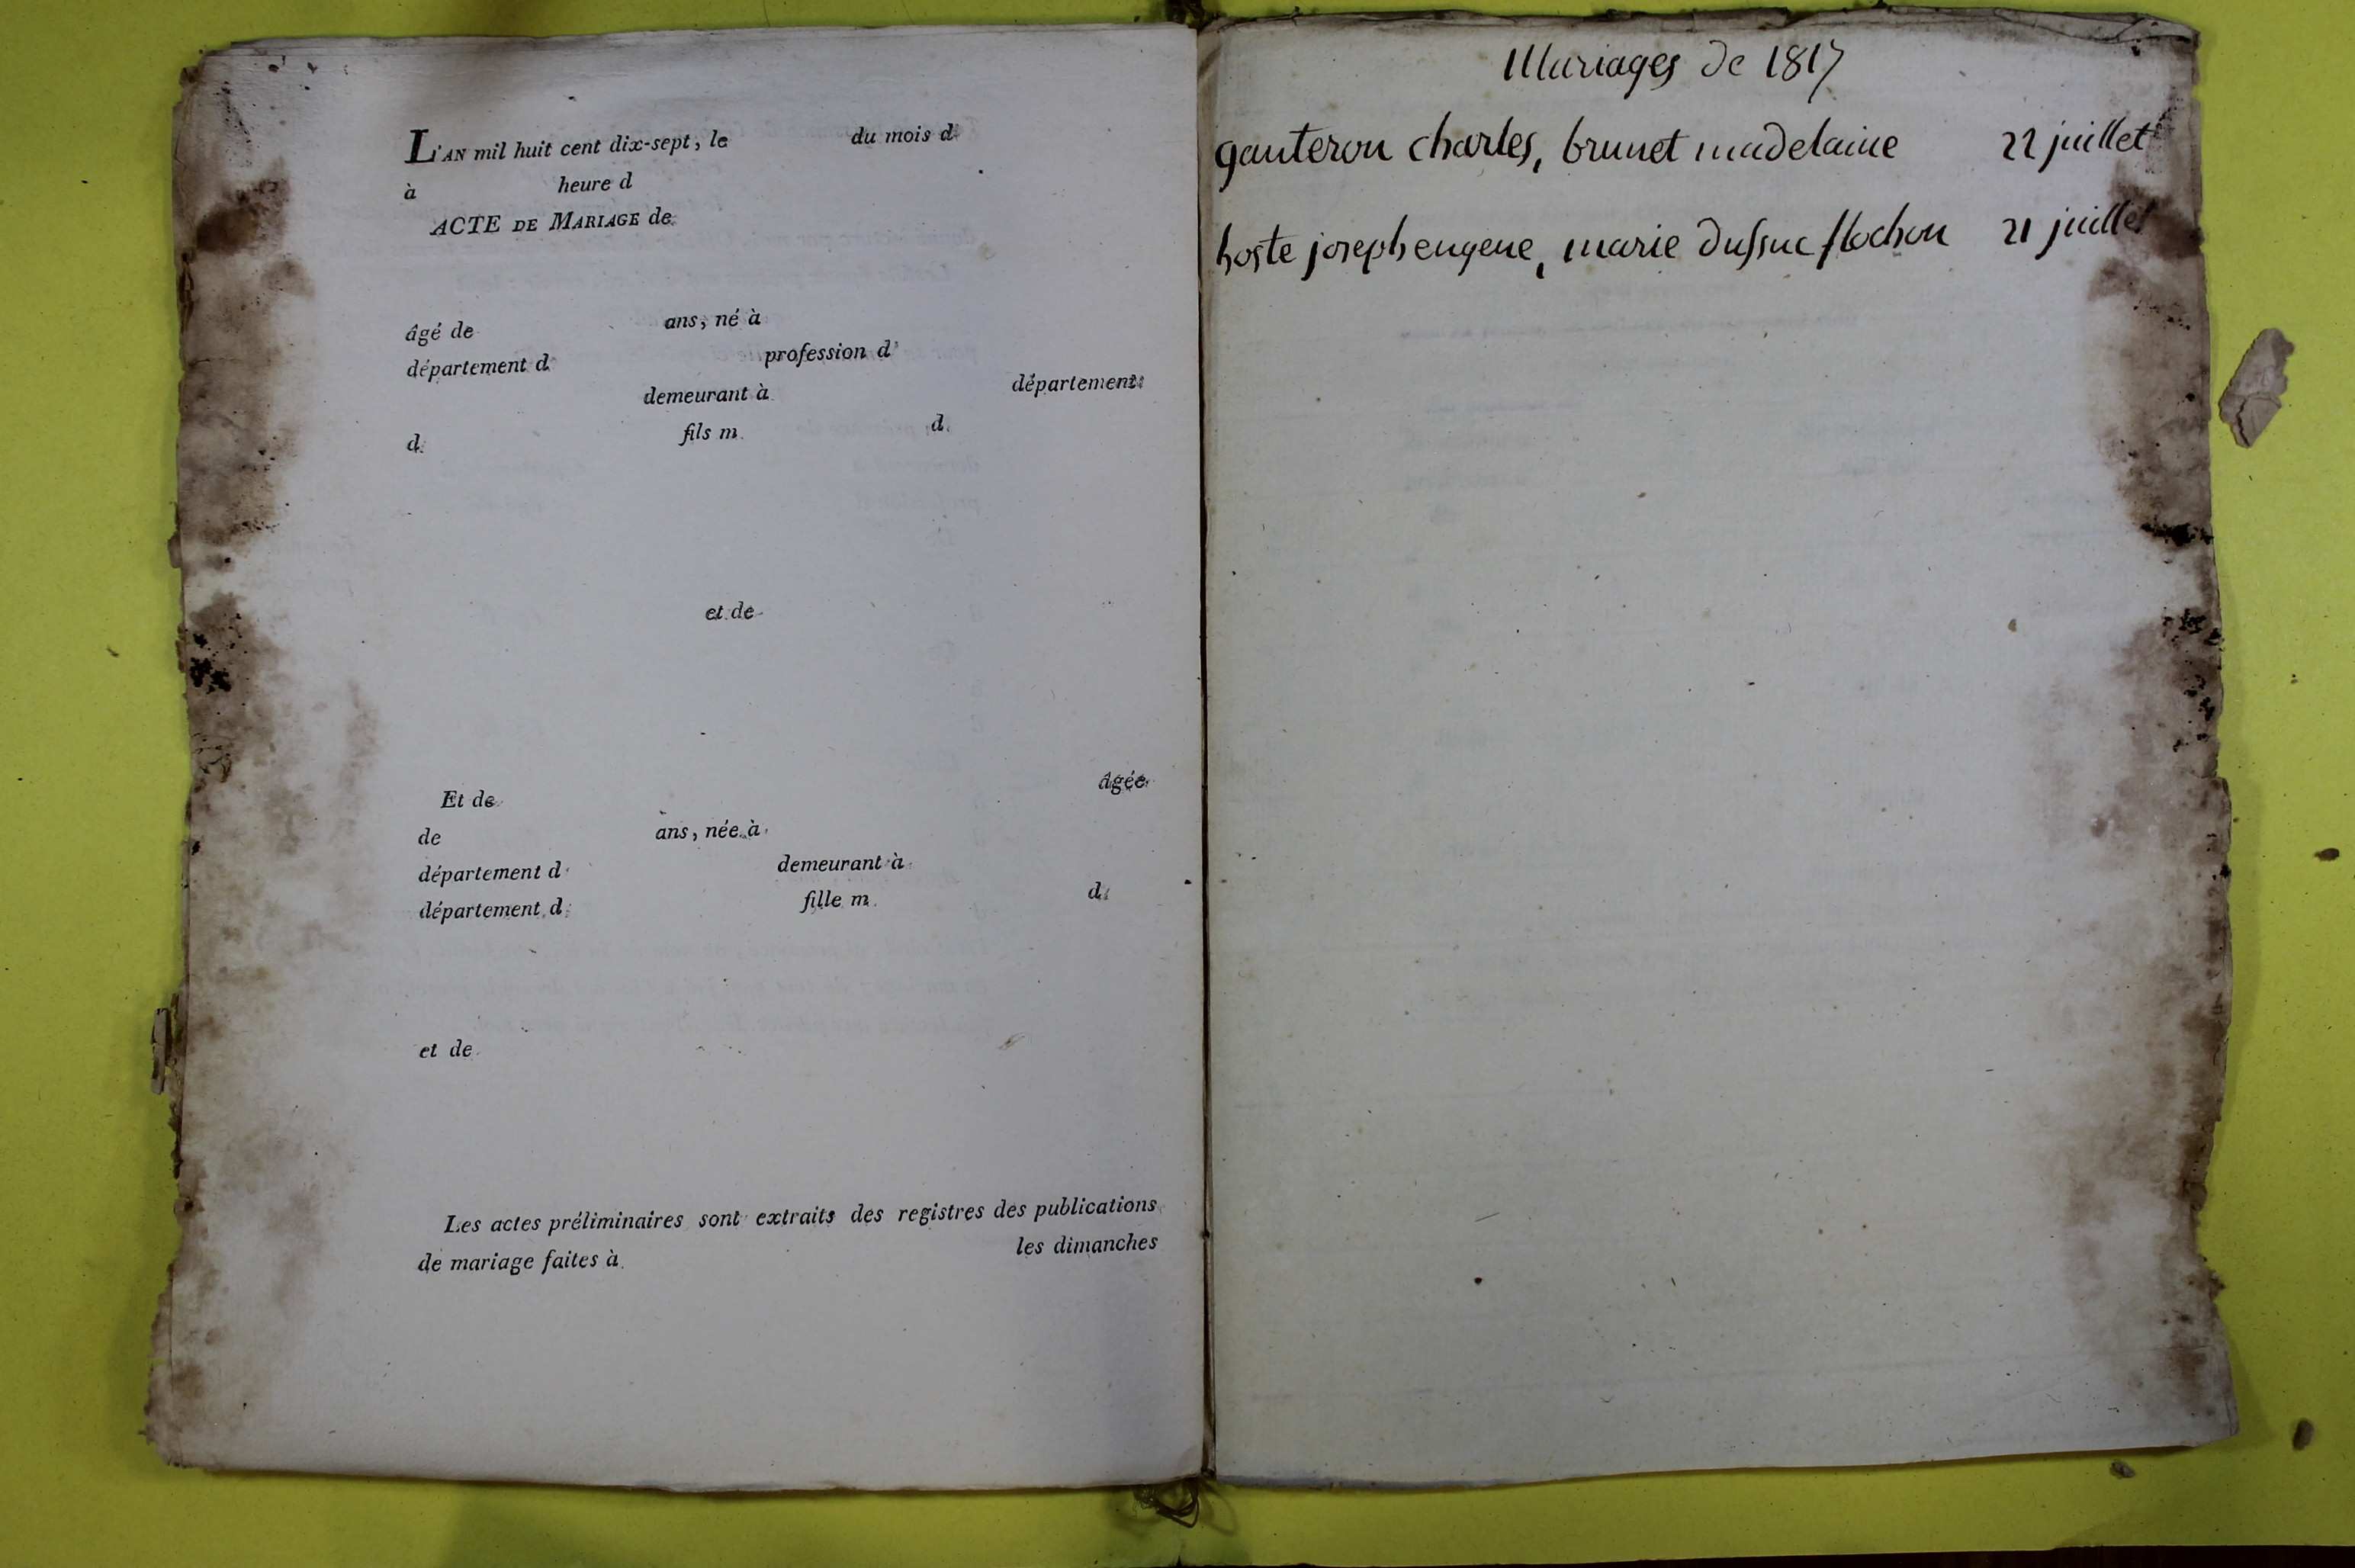 L'AN mil huit cent dix-sept, le du mois d
à heure d
ACTE DE MARIAGE de
âgé de ans, né à
département d profession d
demeurant à département
d fils m d
et de
Et de âgée
de ans, née à
département d demeurant à
département d fille m d
et de
Les actes préliminaires sont extraits des registres des publications
de mariage faites à les dimanches
Mariages de 1817
ganteron charles, brunet madelaine 22 juillet
hoste joseph eugene, marie 21 juillet